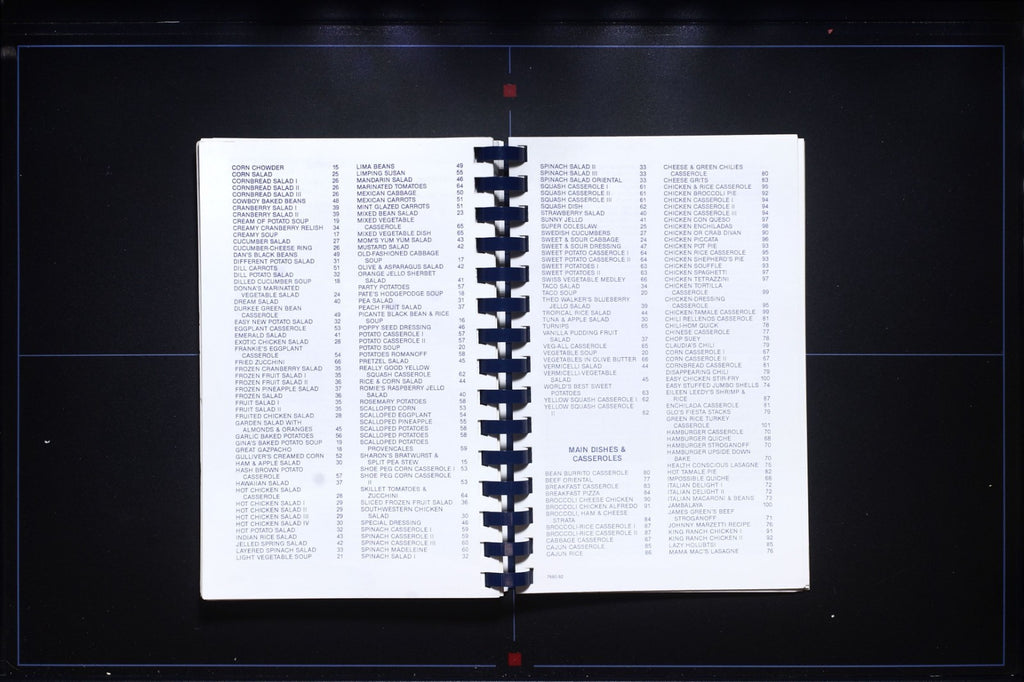 CORN CHOWDER 15
CORN SALAD 25
CORNBREAD SALAD I 26
CORNBREAD SALAD II 26
CORNBREAD SALAD III 26
COWBOY BAKED BEANS 48
CRANBERRY SALAD I 39
CRANBERRY SALAD II 39
CREAM OF POTATO SOUP 19
CREAMY CRANBERRY RELISH 34
CREAMY SOUP 17
CUCUMBER SALAD 27
CUCUMBER-CHEESE RING 26
DAN'S BLACK BEANS 49
DIFFERENT POTATO SALAD 31
DILL CARROTS 51
DILL POTATO SALAD 32
DILLED CUCUMBER SOUP 18
DONNA'S MARINATED
VEGETABLE SALAD 24
DREAM SALAD 40
DURKEE GREEN BEAN
CASSEROLE 49
EASY NEW POTATO SALAD 32
EGGPLANT CASSEROLE 53
EMERALD SALAD 41
EXOTIC CHICKEN SALAD 28
FRANKIE'S EGGPLANT
CASSEROLE 54
FRIED ZUCCHINI 66
FROZEN CRANBERRY SALAD 35
FROZEN FRUIT SALAD I 35
FROZEN FRUIT SALAD II 36
FROZEN PINEAPPLE SALAD 37
FROZEN SALAD 36
FRUIT SALAD I 35
FRUIT SALAD II 35
FRUITED CHICKEN SALAD 28
GARDEN SALAD WITH
ALMONDS & ORANGES 45
GARLIC BAKED POTATOES 56
GINA'S BAKED POTATO SOUP 19
GREAT GAZPACHO 18
GULLIVER'S CREAMED CORN 52
HAM & APPLE SALAD 30
HASH BROWN POTATO
CASSEROLE 57
HAWAIIAN SALAD 37
HOT CHICKEN SALAD
CASSEROLE 28
HOT CHICKEN SALAD I 29
HOT CHICKEN SALAD II 29
HOT CHICKEN SALAD III 29
HOT CHICKEN SALAD IV 30
HOT POTATO SALAD 32
INDIAN RICE SALAD 43
JELLED SPRING SALAD 42
LAYERED SPINACH SALAD 33
LIGHT VEGETABLE SOUP 21
LIMA BEANS 49
LIMPING SUSAN 55
MANDARIN SALAD 46
MARINATED TOMATOES 64
MEXICAN CABBAGE 50
MEXICAN CARROTS 51
MINT GLAZED CARROTS 51
MIXED BEAN SALAD 23
MIXED VEGETABLE
CASSEROLE 65
MIXED VEGETABLE DISH 65
MOM'S YUM YUM SALAD 43
MUSTARD SALAD 42
OLD-FASHIONED CABBAGE
SOUP 17
OLIVE & ASPARAGUS SALAD 42
ORANGE JELLO SHERBET
SALAD 41
PARTY POTATOES 57
PATE'S HODGEPODGE SOUP 18
PEA SALAD 31
PEACH FRUIT SALAD 37
PICANTE BLACK BEAN & RICE
SOUP 16
POPPY SEED DRESSING 46
POTATO CASSEROLE I 57
POTATO CASSEROLE II 57
POTATO SOUP 20
POTATOES ROMANOFF 58
PRETZEL SALAD 45
REALLY GOOD YELLOW
SQUASH CASSEROLE 62
RICE & CORN SALAD 44
ROMIE'S RASPBERRY JELLO
SALAD 40
ROSEMARY POTATOES 58
SCALLOPED CORN 53
SCALLOPED EGGPLANT 54
SCALLOPED PINEAPPLE 55
SCALLOPED POTATOES 58
SCALLOPED POTATOES 58
SCALLOPED POTATOES
PROVENCALES 59
SHARON'S BRATWURST &
SPLIT PEA STEW 15
SHOE PEG CORN CASSEROLE I 53
SHOE PEG CORN CASSEROLE
II 53
SKILLET TOMATOES &
ZUCCHINI 64
SLICED FROZEN FRUIT SALAD 36
SOUTHWESTERN CHICKEN
SALAD 30
SPECIAL DRESSING 46
SPINACH CASSEROLE I 59
SPINACH CASSEROLE II 59
SPINACH CASSEROLE III 60
SPINACH MADELEINE 60
SPINACH SALAD I 32
SPINACH SALAD II 33
SPINACH SALAD III 33
SPINACH SALAD ORIENTAL 33
SQUASH CASSEROLE I 61
SQUASH CASSEROLE II 61
SQUASH CASSEROLE III 61
SQUASH DISH 62
STRAWBERRY SALAD 40
SUNNY JELLO 41
SUPER COLESLAW 25
SWEDISH CUCUMBERS 27
SWEET & SOUR CABBAGE 24
SWEET & SOUR DRESSING 47
SWEET POTATO CASSEROLE I 64
SWEET POTATO CASSEROLE II 64
SWEET POTATOES I 63
SWEET POTATOES II 63
SWISS VEGETABLE MEDLEY 66
TACO SALAD 34
TACO SOUP 20
THEO WALKER'S BLUEBERRY
JELLO SALAD 39
TROPICAL RICE SALAD 44
TUNA & APPLE SALAD 30
TURNIPS 65
VANILLA PUDDING FRUIT
SALAD 37
VEG-ALL CASSEROLE 65
VEGETABLE SOUP 20
VEGETABLES IN OLIVE BUTTER 66
VERMICELLI SALAD 44
VERMICELLI-VEGETABLE
SALAD 45
WORLD'S BEST SWEET
POTATOES 63
YELLOW SQUASH CASSEROLE I 62
YELLOW SQUASH CASSEROLE
II 62
MAIN DISHES &
CASSEROLES
BEAN BURRITO CASSEROLE 80
BEEF ORIENTAL 77
BREAKFAST CASSEROLE 83
BREAKFAST PIZZA 84
BROCCOLI CHEESE CHICKEN 90
BROCCOLI CHICKEN ALFREDO 91
BROCCOLI, HAM & CHEESE
STRATA 84
BROCCOLI-RICE CASSEROLE I 87
BROCCOLI-RICE CASSEROLE II 87
CABBAGE CASSEROLE 67
CAJUN CASSEROLE 85
CAJUN RICE 86
7680-92
CHEESE & GREEN CHILIES
CASSEROLE 80
CHEESE GRITS 83
CHICKEN & RICE CASSEROLE 95
CHICKEN BROCCOLI PIE 92
CHICKEN CASSEROLE I 94
CHICKEN CASSEROLE II 94
CHICKEN CASSEROLE III 94
CHICKEN CON QUESO 97
CHICKEN ENCHILADAS 98
CHICKEN OR CRAB DIVAN 90
CHICKEN PICCATA 96
CHICKEN POT PIE 93
CHICKEN RICE CASSEROLE 95
CHICKEN SHEPHERD'S PIE 93
CHICKEN SOUFFLE
CHICKEN SPAGHETTI 97
CHICKEN TETRAZZINI 97
CHICKEN TORTILLA
CASSEROLE 99
CHICKEN-DRESSING
CASSEROLE 95
CHICKEN-TAMALE CASSEROLE 99
CHILI RELLENOS CASSEROLE 81
CHILI-HOM QUICK 78
CHINESE CASSEROLE 77
CHOP SUEY 78
CLAUDIA'S CHILI 79
CORN CASSEROLE I 67
CORN CASSEROLE II 67
CORNBREAD CASSEROLE 81
DISAPPEARING CHILI 79
EASY CHICKEN STIR-FRY 100
EASY STUFFED JUMBO SHELLS 74
EILEEN LEEDY'S SHRIMP &
RICE 87
ENCHILADA CASSEROLE 81
GLO'S FIESTA STACKS 79
GREEN RICE TURKEY
CASSEROLE 101
HAMBURGER CASSEROLE 70
HAMBURGER QUICHE 68
HAMBURGER STROGANOFF 70
HAMBURGER UPSIDE DOWN
BAKE 70
HEALTH CONSCIOUS LASAGNE 75
HOT TAMALE PIE 82
IMPOSSIBLE QUICHE 68
ITALIAN DELIGHT I 72
ITALIAN DELIGHT II 72
ITALIAN MACARONI & BEANS 73
JAMBALAYA 100
JAMES GREEN'S BEEF
STROGANOFF 71
JOHNNY MARZETTI RECIPE 76
KING RANCH CHICKEN I 91
KING RANCH CHICKEN II 92
LAZY HOLUBTSI 85
MAMA MAC'S LASAGNE 76